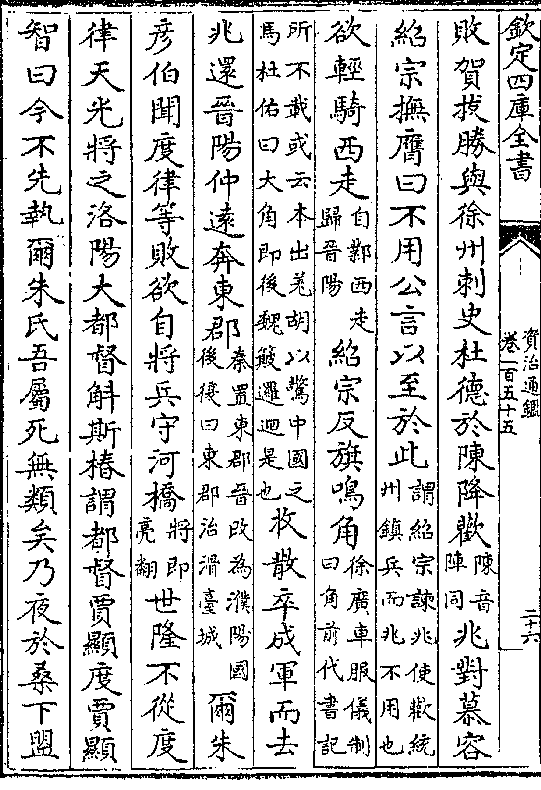 欽定四庫全書
資治通鑑
卷一百五十五
二十六
敗賀拔勝與徐州刺史杜德於陳降歡陳音陣同兆對慕容
紹宗撫膺曰不用公言以至於此謂紹宗諫兆使歡統州鎮兵而兆不用也
欲輕騎西走自鄴西走歸晉陽紹宗反旗鳴角徐廣車服儀制曰角前代書記
所不載或云本出羌胡以驚中國之馬杜佑曰大角即後魏簸邏迴是也收散卒成軍而去
兆還晉陽仲遠奔東郡秦置東郡晉改為濮陽國後復曰東郡治滑臺城爾朱
彥伯聞度律等敗欲自將兵守河橋將即亮翻世隆不從度
律天光將之洛陽大都督斛斯椿謂都督賈顯度賈顯
智曰今不先執爾朱氏吾屬死無類矣乃夜於桑下盟